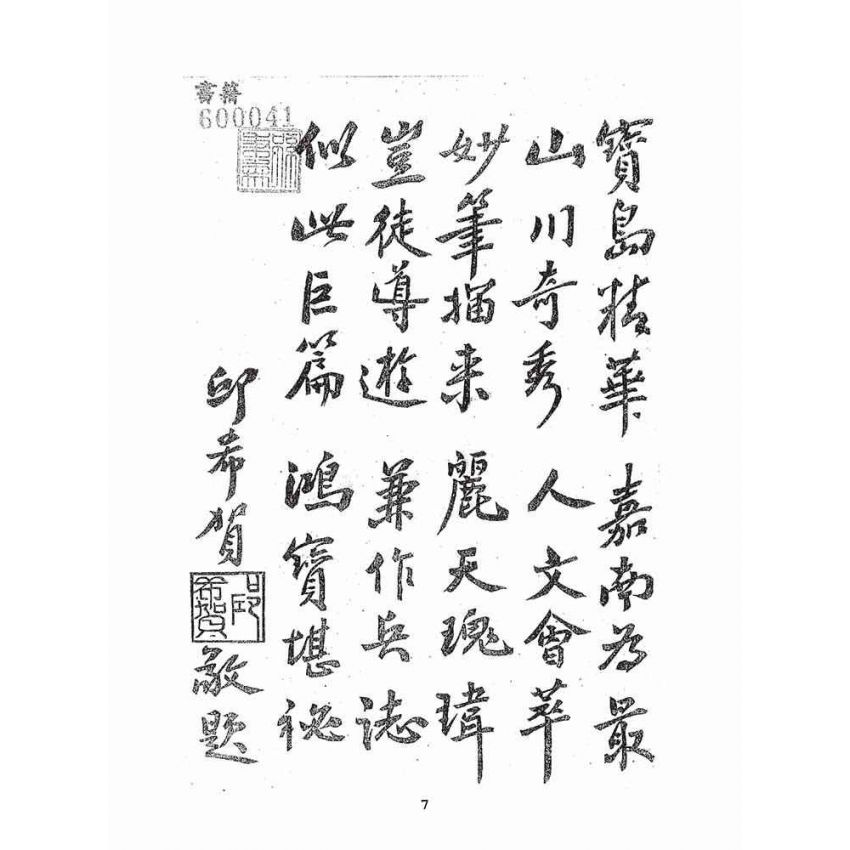 寶島精華 嘉南為最
山川奇秀 人文會萃
妙筆描來 麗天瑰瑋
豈徒導遊 兼作兵誌
似此巨篇 鴻寶堪祕
邱希賀 敬題
書籍
600041
7